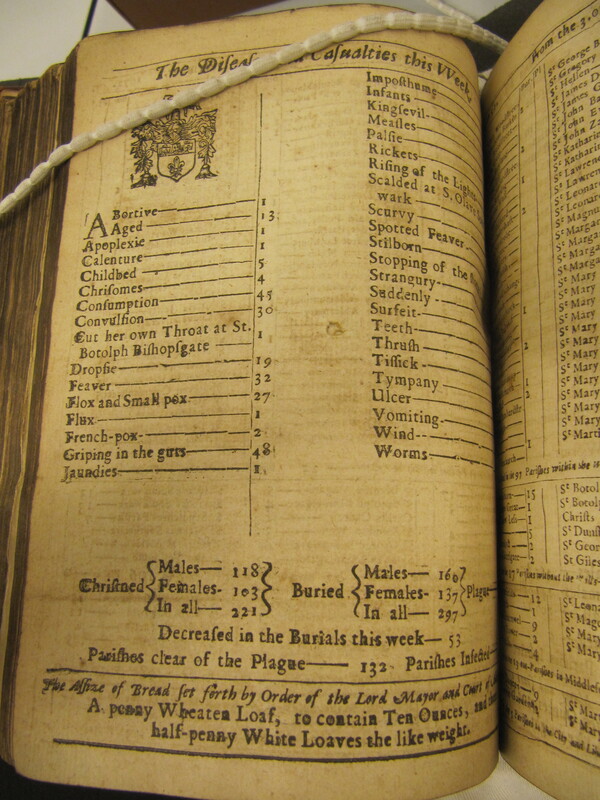 The Diseases and Casualties this Week
Abortive 1
Aged 13
Apoplexie 1
Calenture 1
Childbed 5
Chrisomes 4
Consumption 45
Convulsion 30
Cut her own Throat at St.
Botolph Bishopsgate 1
Dropsie 19
Feaver 32
Flox and Small pox 27
Flux 1
French-pox 2
Griping in the guts 48
Jaundies 1
Imposthume
Infants
Kingsevil
Measles
Palsie
Rickets
Rising of the Lights
Scalded at S. Olaves
wark
Scurvy
Spotted Feaver
Stilborn
Stopping of the
Strangury
Suddenly
Surfeit
Teeth
Thrush
Tissick
Tympany
Ulcer
Vomiting
Wind
Worms
Christned Males 118 Females 103 In all 221 Buried Males 160 Females 137 In all 297 Plague
Decreased in the Burials this week 53
Parishes clear of the Plague 132 Parishes Infected
The Assize of Bread set forth by Order of the Lord Mayor and Court of
A penny Wheaten Loaf, to contain Ten Ounces, and
half-penny White Loaves the like weight.
From the 3. of
St George B
St Gregory
St Hellen
St James D
St James G
St John Ba
St John E
St John Z
St Katharin
St Katharin
St Lawrenc
St Lawrenc
St Leonard
St Leonard
St Magnus
St Margar
St Margar
St Margar
St Margar
St Mary
St Mary
St Mary
St Mary
St Mary
St Mary
St Mary
St Mary
St Mary
St Marti
St Botol
St Botol
Christs
St Dunst
St Geor
St Giles
St Leona
St Magd
St Mary
St Mary
St Mary
St Mary